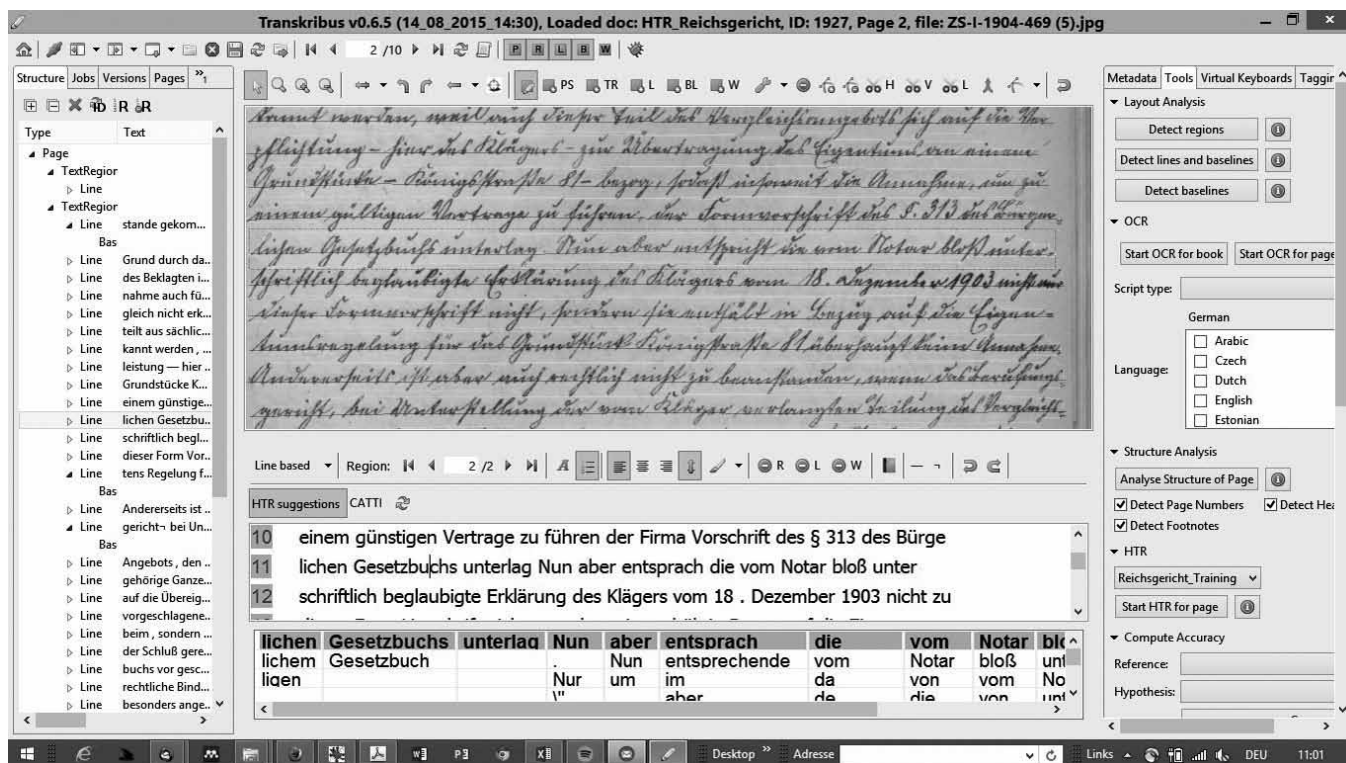 Transkribus v0.6.5 (14_08_2015_14:30), Loaded doc: HTR_Reichsgericht, ID: 1927, Page 2, file: ZS-I-1904-469 (5).jpg
2 /10
P R L B W
Structure Jobs Versions Pages »1
PS TR BL L BL W H V L
Metadata Tools Virtual Keyboards Taggin
Type Text
Page
TextRegior
Line
TextRegior
Line stande gekom...
Bas
Line Grund durch da..
Line des Beklagten i...
Line nahme auch fü...
Line gleich nicht erk...
Line teilt aus sächlic...
Line kannt werden , ...
Line leistung — hier ..
Line Grundstücke K...
Line einem günstige...
Line lichen Gesetzbu..
Line schriftlich begl...
Line dieser Form Vor...
Line tens Regelung f...
Bas
Line Andererseits ist ..
Line gericht¬ bei Un...
Bas
Line Angebots , den ..
Line gehörige Ganze...
Line auf die Übereig...
Line vorgeschlagene..
Line beim , sondern ...
Line der Schluß gere...
Line buchs vor gesc...
Line rechtliche Bind...
Line besonders ange..
kannt werden, weil auch dieser Teil des Vergleichsangebots sich auf die Ver
pflichtung – hier des Klägers – zur Übertragung des Eigentums an einem
Grundstücke – Königsstraße 81 – bezog, sodaß insoweit die Annahme, um zu
einem gültigen Vertrage zu führen, der Formvorschrift des §. 313 des Bürger-
lichen Gesetzbuchs unterlag. Nun aber entspricht die vom Notar bloß unter-
schriftlich beglaubigte Erklärung des Klägers vom 18. Dezember 1903 nicht nur
dieser Formvorschrift nicht, sondern sie enthält in Bezug auf die Eigen-
tumsregelung für das Grundstück Königstraße 81 überhaupt keine Annahme.
Andererseits ist aber auch rechtlich nicht zu beanstanden, wenn das Berufungs-
gericht, bei Unterstellung der vom Kläger verlangten Teilung des Vergleichs-
Line based Region: 2 /2 A R L W
HTR suggestions CATTI
10 einem günstigen Vertrage zu führen der Firma Vorschrift des § 313 des Bürge
11 lichen Gesetzbuchs unterlag Nun aber entsprach die vom Notar bloß unter
12 schriftlich beglaubigte Erklärung des Klägers vom 18 . Dezember 1903 nicht zu
lichen Gesetzbuchs unterlag Nun aber entsprach die vom Notar
lichem Gesetzbuch . Nun entsprechende vom Notar bloß
ligen Nur um im da von vom No
\" aber de die von
Layout Analysis
Detect regions
Detect lines and baselines
Detect baselines
OCR
Start OCR for book Start OCR for page
Script type:
German
Language:
Arabic
Czech
Dutch
English
Estonian
Structure Analysis
Analyse Structure of Page
Detect Page Numbers Detect Hea
Detect Footnotes
HTR
Reichsgericht_Training
Start HTR for page
Compute Accuracy
Reference:
Hypothesis:
Desktop » Adresse Links DEU 11:01